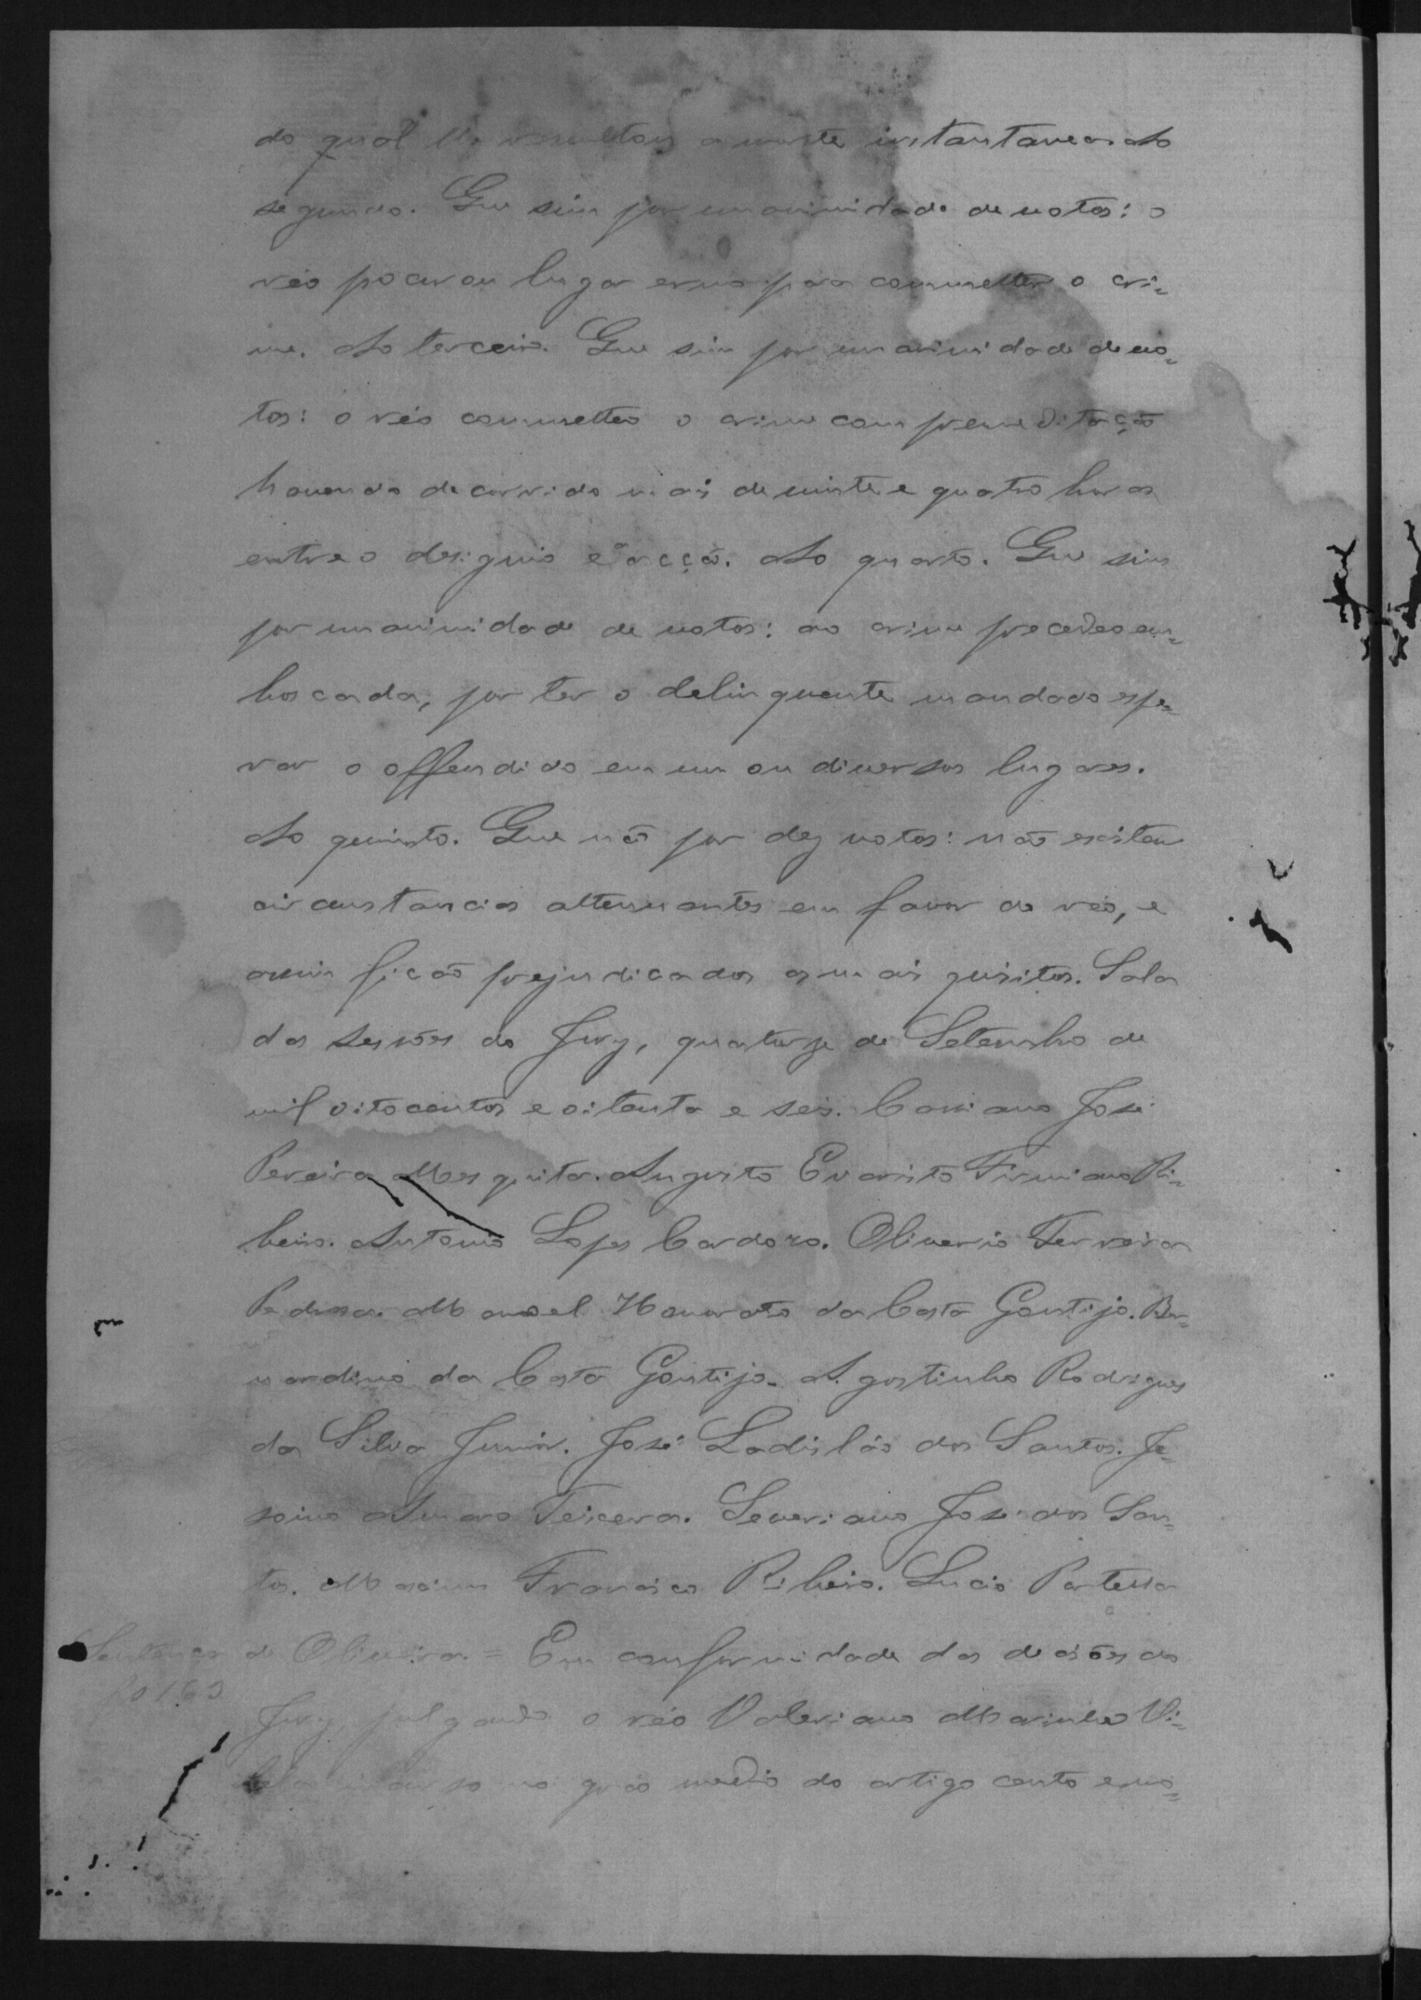 do qual lhe resultou a morte instantanea. Ao
segundo. Que sim por unanimidade de votos: o
réo procurou lugar ermo para commetter o cri=
me. Ao terceiro. Que sim por unanimidade de vo=
tos: o réo commetteo o crime com premeditação
havendo decorrido mais de vinte e quatro horas
entre o designio e a acção. Ao quarto. Que sim
por unanimidade de votos: ao crime precedeo em=
boscada, por ter o delinquente mandado espe=
rar o offendido em um ou diversos lugares.
Ao quinto. Que não por dez votos: não existem
circunstancias attenuantes em favor do réo, e
assim ficão prejudicados os mais quisitos. Sala
das sessões do Jury, quatorze de Setembro de
mil oitocentos e oitenta e seis. Cassiano José
Pereira Mesquita. Augusto Evaristo Firmiano Ri=
beiro. Antonio Lopes Cardozo. Oliverio Ferreira
Pedrosa. Manoel Honorato da Costa Gontijo. Ber=
nardino da Costa Gontijo. Agostinho Rodrigues
da Silva Junior. José Ladisláo dos Santos. Je=
soino Amaro Teixeira. Severiano José dos San=
tos. Maximo Francisco Ribeiro. Lucio Portella
de Oliveira = Em conformidade das decisões do
Sentença
Jury julgando o réo Valeriano Marinho Vi=
incurso no gráo medio do artigo cento e no=